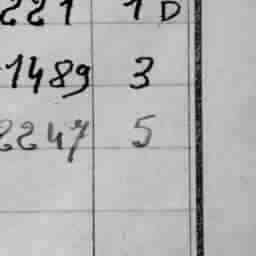 221 1D
1489 3
2247 5